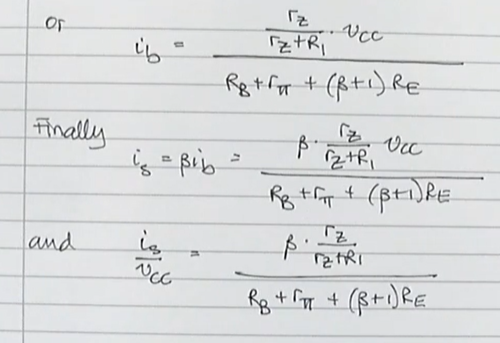 or
i_b = (r_z / (r_z + R_1) · v_CC) / (R_B + r_π + (β+1) R_E)
Finally
i_s = βi_b = (β · r_z / (r_z + R_1) v_CC) / (R_B + r_π + (β+1) R_E)
and i_s / v_CC = (β · r_z / (r_z + R_1)) / (R_B + r_π + (β+1) R_E)